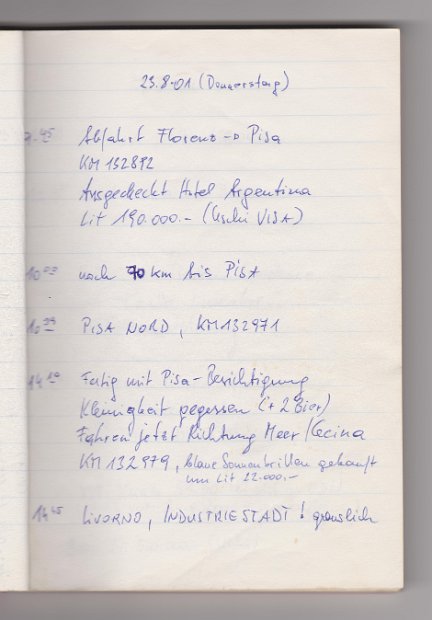 23.8.01 (Donnerstag)
9.45 Abfahrt Florenz → Pisa
KM 132892
Ausgecheckt Hotel Argentina
Lit 190.000.- (Uschi VISA)
10 03 noch 70 km bis PISA
10 39 PISA NORD, KM 132971
14 10 Fertig mit Pisa-Besichtigung
Kleinigkeit gegessen (+ 2 Bier)
Fahren jetzt Richtung Meer/Cecina
KM 132979, blaue Sonnenbrillen gekauft
um Lit 22.000,-
14 45 LIVORNO, INDUSTRIESTADT! grauslich